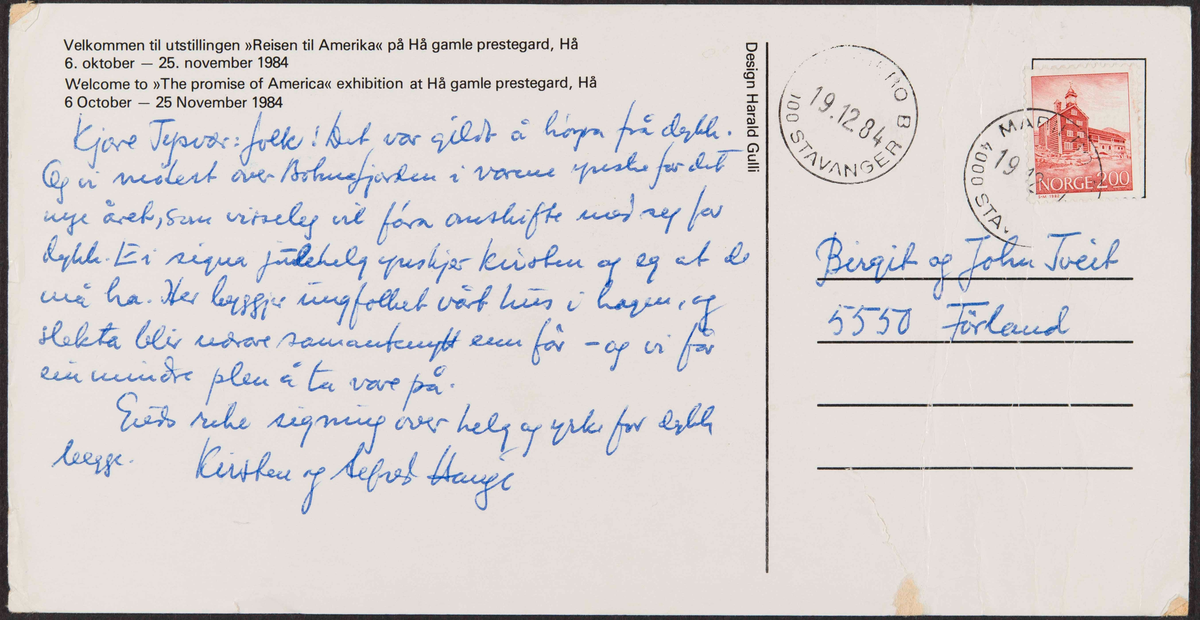 Velkommen til utstillingen »Reisen til Amerika« på Hå gamle prestegard, Hå
6. oktober — 25. november 1984
Welcome to »The promise of America« exhibition at Hå gamle prestegard, Hå
6 October — 25 November 1984
Kjære Tysvær-folk! Det var gildt å høyra frå dykk.
Og vi møtest over Boknafjorden i varme ynske for det
nye året, som visseleg vil føra omskifte med seg for
dykk. Ei signa julehelg ynskjer Kirsten og eg at de
må ha. Her byggjer ungfolket vårt hus i hagen, og
slekta blir nærare samanknytt enn før – og vi får
ein mindre plen å ta vare på.
Guds rike signing over helg og yrke for dykk
begge. Kirsten og Alfred Hauge
Design Harald Gulli
19.12.84
STAVANGER
MAR
19
4000 STAV
NORGE 200
Birgit og John Tveit
5550 Förland